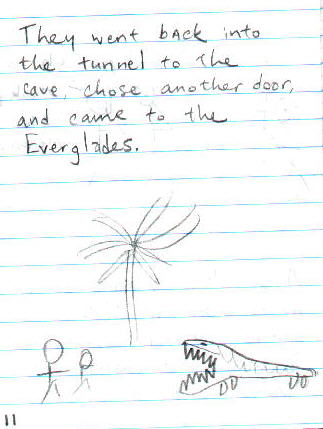 They went back into
the tunnel to the
cave, chose another door,
and came to the
Everglades.
11